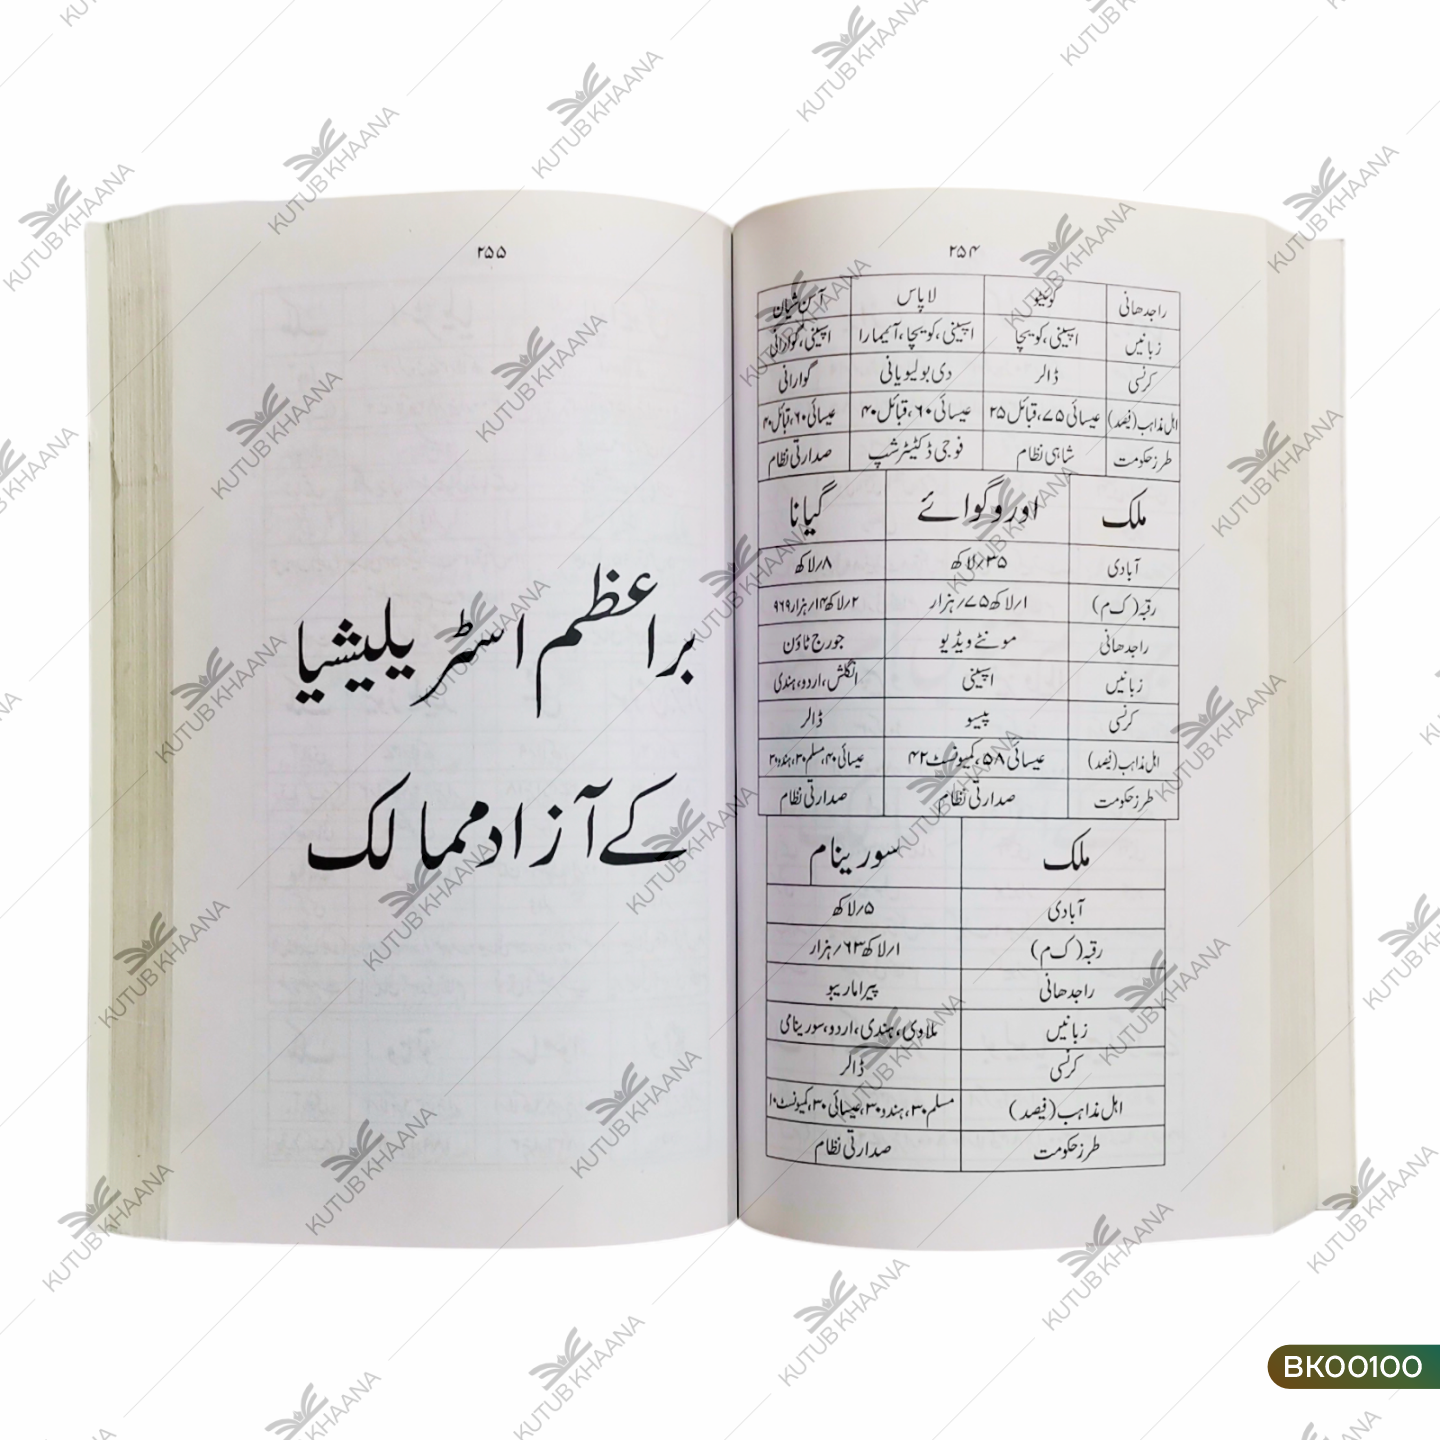 ۲۵۴
راجدھانی کوئیٹو لاپاس آسن شیان
زبانیں اسپینی، کویچا اسپینی، کویچا، آئیمارا اسپینی، گوارانی
کرنسی ڈالر دی بولیویانی گوارانی
اہل مذاہب (فیصد) عیسائی ۷۵، قبائل ۲۵ عیسائی ۶۰، قبائل ۴۰ عیسائی ۶۰، قبائل ۴۰
طرز حکومت شاہی نظام فوجی ڈکٹیٹر شپ صدارتی نظام
ملک اوروگوائے گیانا
آبادی ۳۵/لاکھ ۸/لاکھ
رقبہ (ک م) ۱/لاکھ ۷۵/ہزار ۲/لاکھ ۱۴/ہزار ۹۶۹
راجدھانی مونٹے ویڈیو جورج ٹاؤن
زبانیں اسپینی انگلش، اردو، ہندی
کرنسی پیسیو ڈالر
اہل مذاہب (فیصد) عیسائی ۵۸، کمیونسٹ ۴۲ عیسائی ۴۰، مسلم ۳۰، ہندو ۳۰
طرز حکومت صدارتی نظام صدارتی نظام
ملک سورینام
آبادی ۵/لاکھ
رقبہ (ک م) ۱/لاکھ ۶۳/ہزار
راجدھانی پیراماریبو
زبانیں ملاوی، ہندی، اردو، سورینامی
کرنسی ڈالر
اہل مذاہب (فیصد) مسلم ۳۰، ہندو ۳۰، عیسائی ۳۰، کمیونسٹ ۱۰
طرز حکومت صدارتی نظام
۲۵۵
براعظم اسٹریلیشیا
کے آزاد ممالک
KUTUB KHAANA
BK00100